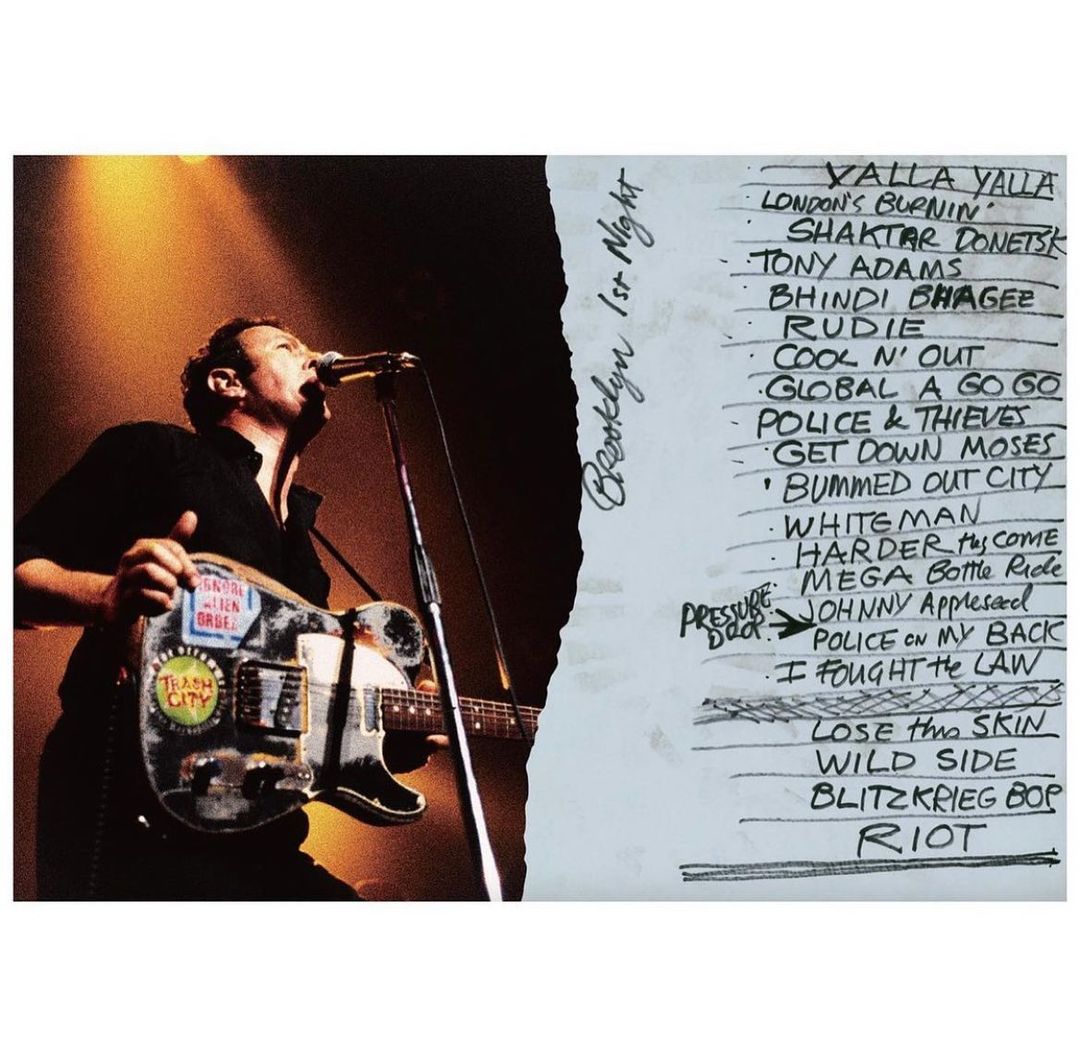 IGNORE
ALIEN
ORDERS
TRASH
CITY
Brooklyn 1st Night
YALLA YALLA
LONDON'S BURNIN'
SHAKTAR DONETSK
TONY ADAMS
BHINDI BHAGEE
RUDIE
COOL N' OUT
GLOBAL A GO GO
POLICE & THIEVES
GET DOWN MOSES
BUMMED OUT CITY
WHITE MAN
HARDER they COME
MEGA Bottle Ride
PRESSURE
DROP
JOHNNY Appleseed
POLICE on MY BACK
I FOUGHT the LAW
LOSE this SKIN
WILD SIDE
BLITZKRIEG BOP
RIOT